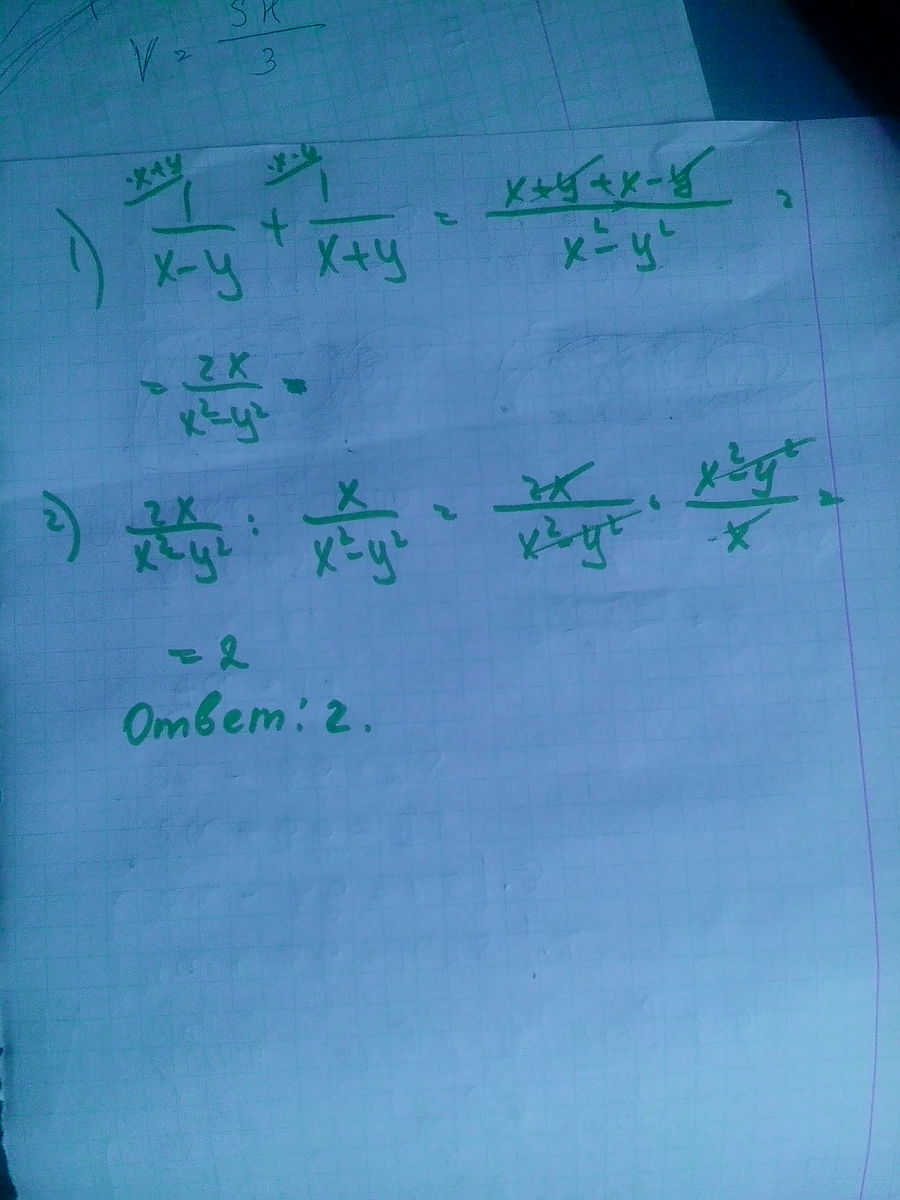 V = SH/3
·x+y ·x-y
1) 1/(x-y) + 1/(x+y) = (x+y+x-y)/(x²-y²) =
= 2x/(x²-y²) =
2) 2x/(x²-y²) : x/(x²-y²) = 2x/(x²-y²) · (x²-y²)/x =
= 2
Ответ: 2.